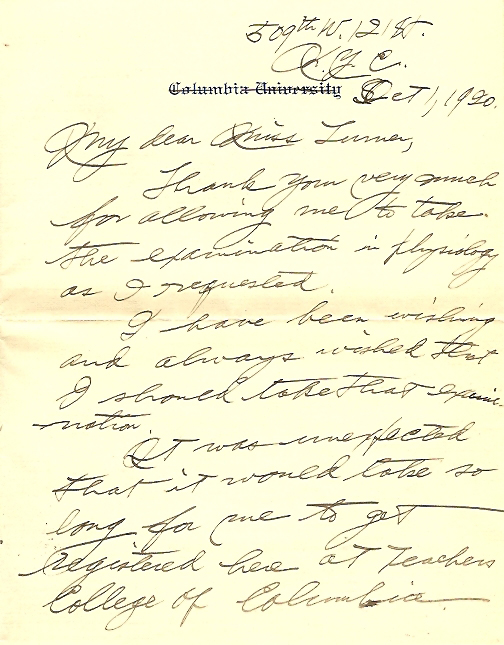 509th W. 121 St.
N. Y. C.
Columbia University Oct 1, 1920
My dear Miss Turner,
Thank your very much
for allowing me to take
the examination in physiology
as I requested.
I have been wishing
and always wished that
I should take that exami-
nation.
It was unexpected
that it would take so
long for me to get
registered here at Teachers
College of Columbia